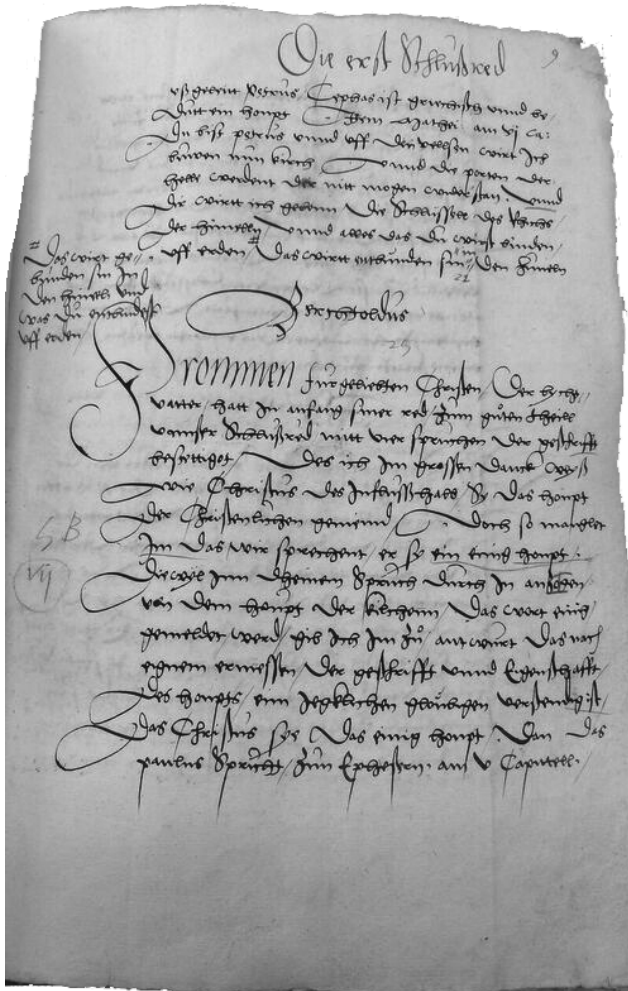 Die erst Schlußred 9
uß geleitt Petrus Cephas ist griechisch unnd be-
dutt ein houpt Item Mathei am vj ca:
Du bist petrus unnd uff den velsen wirt Ich
buwen min kirch Unnd die porten der
helle werdent der nitt mögen widerstan. Unnd
dir wirtt ich geben die Schlüssell des Richs
der himeln Unnd alles das du wirst binden
uff erden # Das wirtt entbunden sin in den himeln
21
# Das wirt ge-
bunden sin In
den himeln und
was du entbindest
uff erden
Berchtoldus
25
Frommen fürgeliebten Christen Der bycht-
vatter hatt In anfang siner red zum guten theill
unnser Schlußred mitt vier sprüchen der geschrifft
bestettiget Des ich Im grossen danck weyß
wie Christus des Influsshalb Sy das houpt
der Christenlichen gemeind Doch so manglet
Im das wir sprechent er sy ein einig houpt.
5 B
vij
Diewyl Inn dheinem Spruch durch In
von dem houpt der kilchenn Das wort einig
gemeldet werd gib Ich Im zu antwurt Das nach
eignem ermessen der geschrifft unnd Eigenschafft
des houpts einn Jegklichen glöubigen verstendig ist
das Christus sye Das einig houpt. Dan Das
paulus Spricht zun Ephesern am v Capitell.